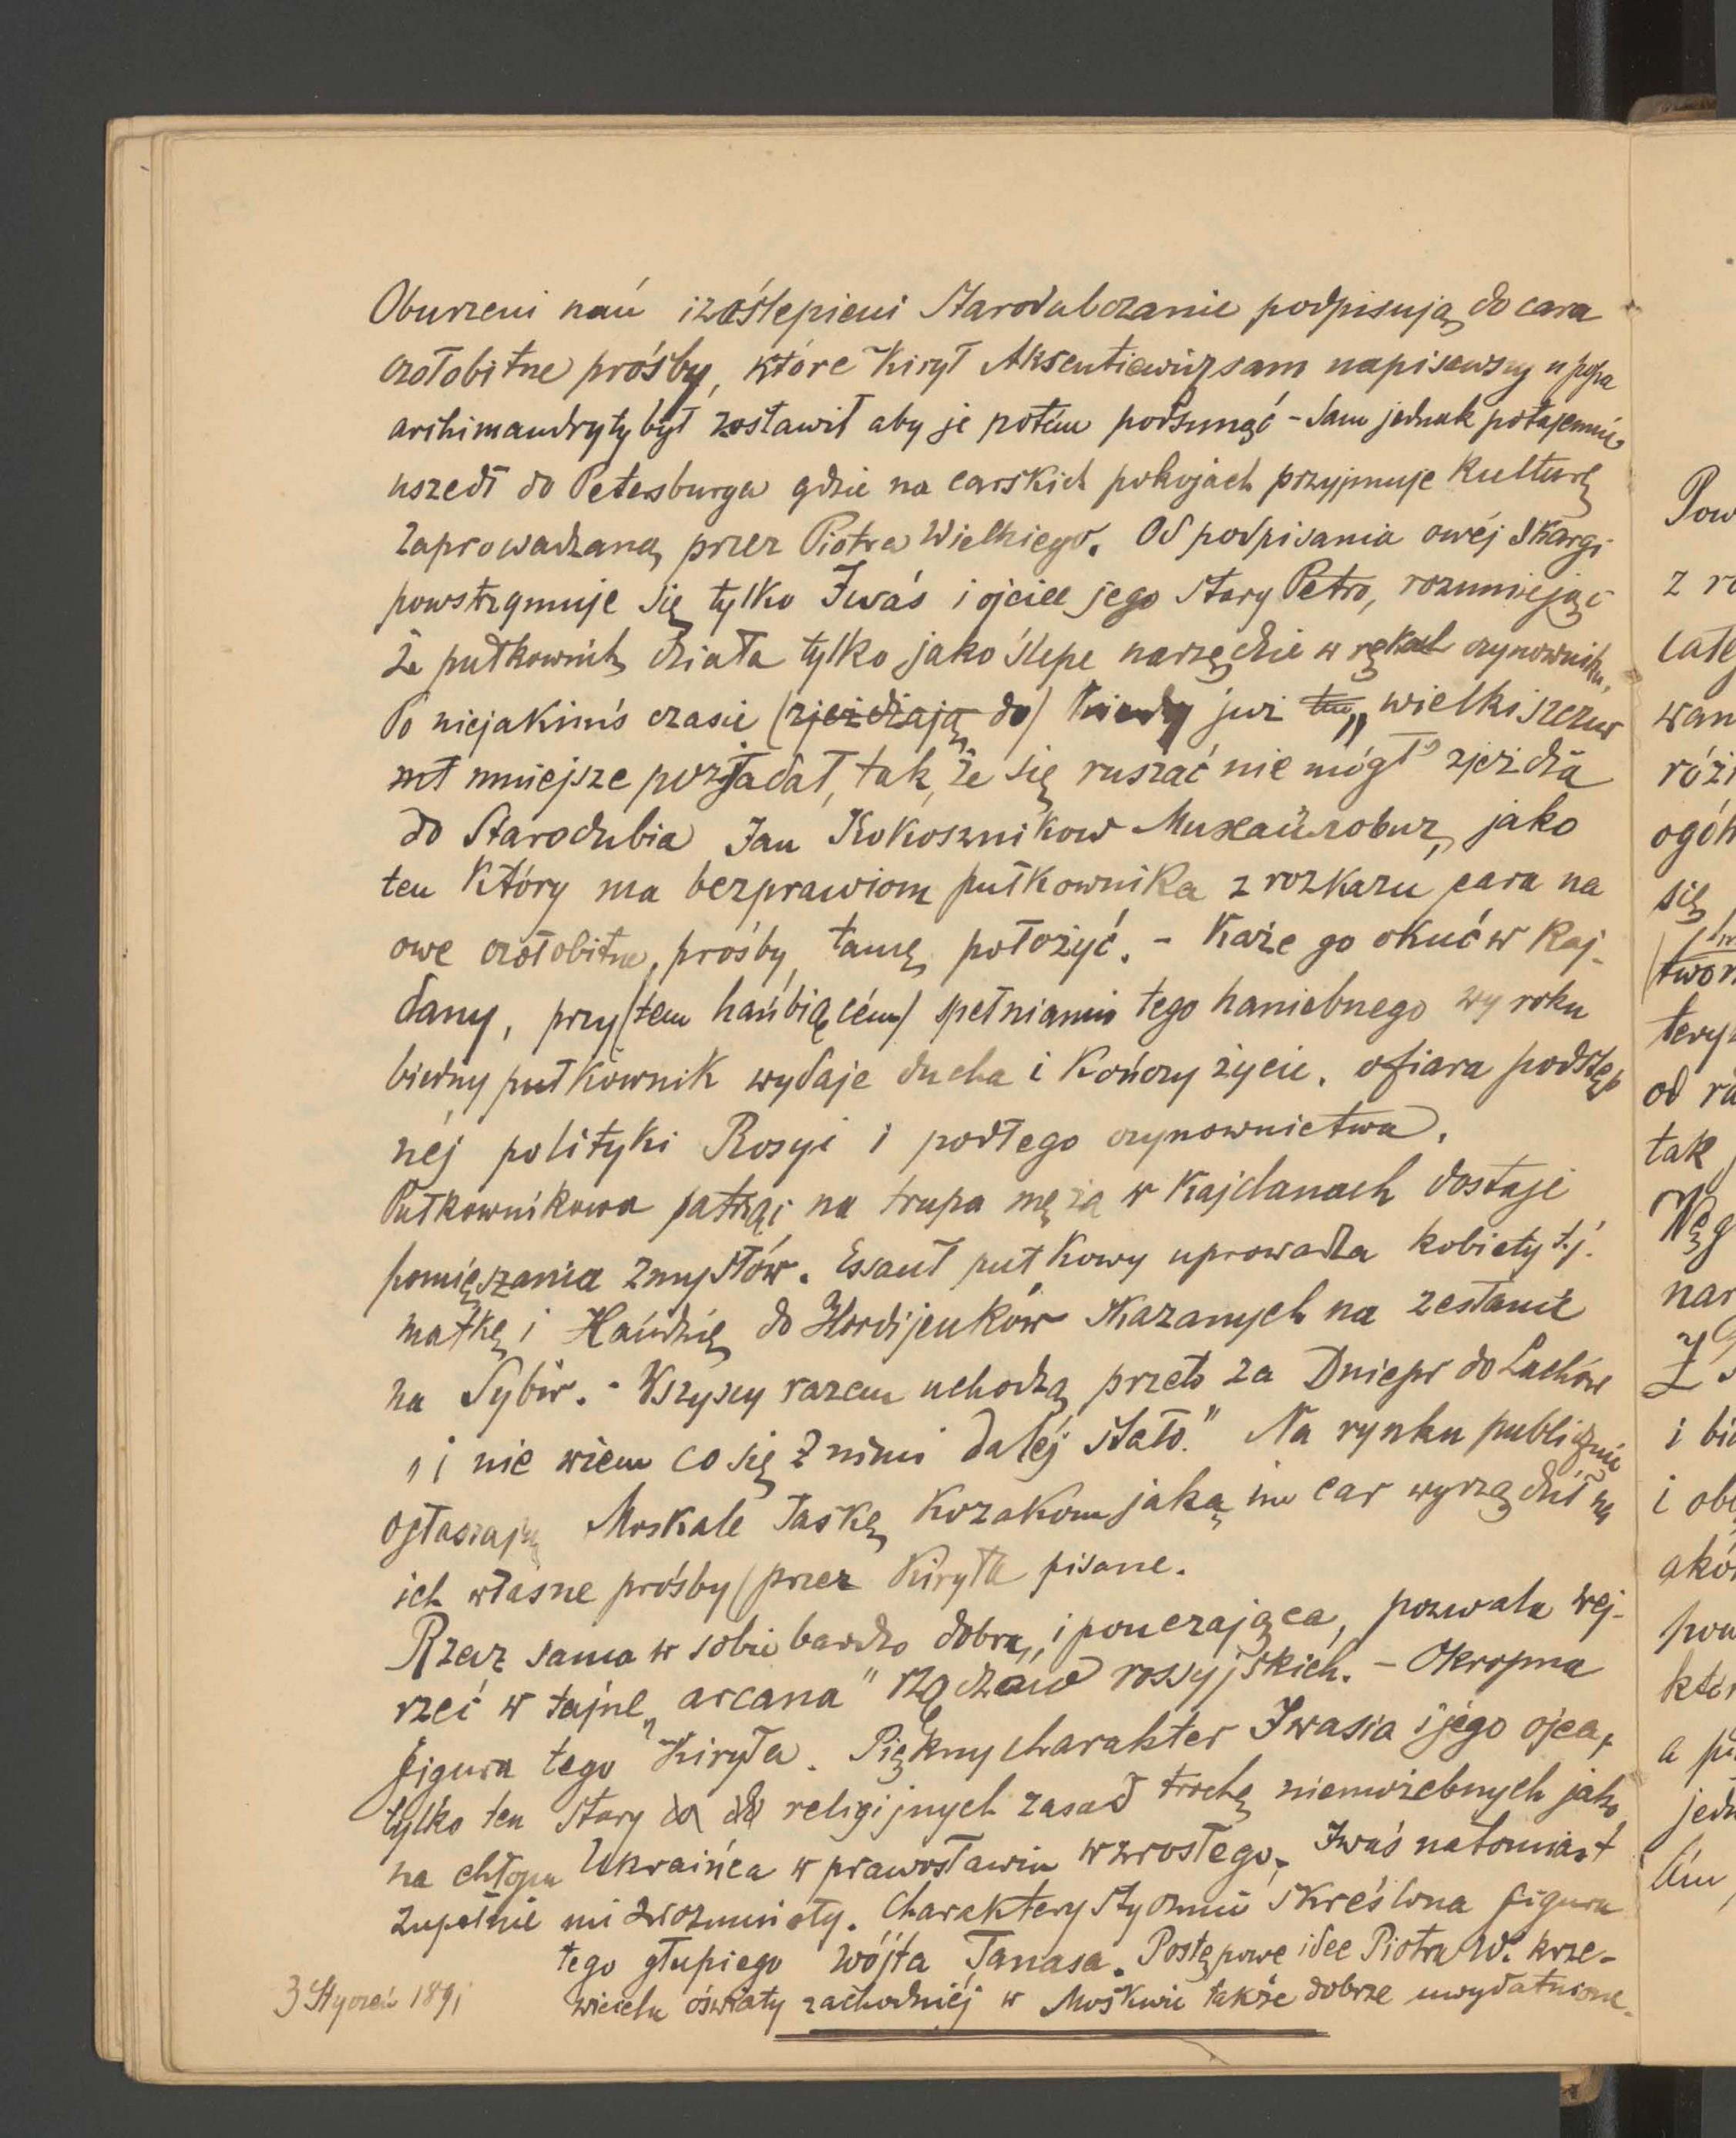 Oburzeni nań i zaślepieni Starodubczanie podpisują do cara
czołobitne prośby, które Kirył Aksentiewicz sam napisawszy u popa
archimandryty był zostawił aby je potém podsunąć – Sam jednak potajemnie
uszedł do Petersburga gdzie na carskich pokojach przyjmuje kulturę
zaprowadzaną przez Piotra Wielkiego. Od podpisania owéj skargi
powstrzymuje się tylko Iwaś i ojciec jego stary Petro, rozumiejąc
że pułkownik działa tylko jako ślepe narzędzie w rękach czynownika,
Po niejakimś czasie (zjeżdżają do) kiedy już tu „wielki szczur
mniejsze pozjadał, tak, że się ruszać nie mógł" zjeżdża
do Starodubia Jan Kokosznikow Михайловиз, jako
ten który ma bezprawiom pułkownika z rozkazu cara na
owe czołobitne, prośby, tamę położyć. – Każe go okuć w kaj-
dany, przy (tem hańbiącém) spełnianiu tego haniebnego wyroku
biedny pułkownik wydaje ducha i kończy życie, ofiara podstęp
néj polityki Rosyi i podłego czynownictwa.
Pułkownikowa patrząc na trupa męża w kajdanach dostaje
pomięszania zmysłów. Essauł pułkowy uprowadza kobiety t.j.
matkę i Hańdzię do Hordijenków skazanych na zesłanie
na Sybir. – Wszyscy razem uchodzą przeto za Dniepr do Lachów
„i nie wiem co się z nimi daléj stało." Na rynku publicznie
ogłaszają Moskale łaskę kozakom jaką im car wyrządził na
ich własne prośby (przez Kiryła pisane.
Rzecz sama w sobie bardzo dobra, i pouczająca, pozwala wej-
rzeć w tajne „arcana" rządów rossyjskich. – Okropna
figura tego Kiryła. Piękny charakter Iwasia i jego ojca,
tylko ten stary do religijnych zasad trochę jako
na chłopa Ukraińca w prawosławiu wzrosłego, Iwaś natomiast
zupełnie mi zrozumiały. Charakterystycznie skreślona figura
tego głupiego wójta Tanasa. Postępowe idee Piotra W. krze-
wiciela oświaty zachodniéj w Moskwie także dobrze uwydatnione.
3 Styczeń 1891
Pow
z ro
całe
wan
róż
ogóln
się
twor
tery
od ra
tak
Węg
nar
i bi
i obo
akó
pow
któr
a p
jedn